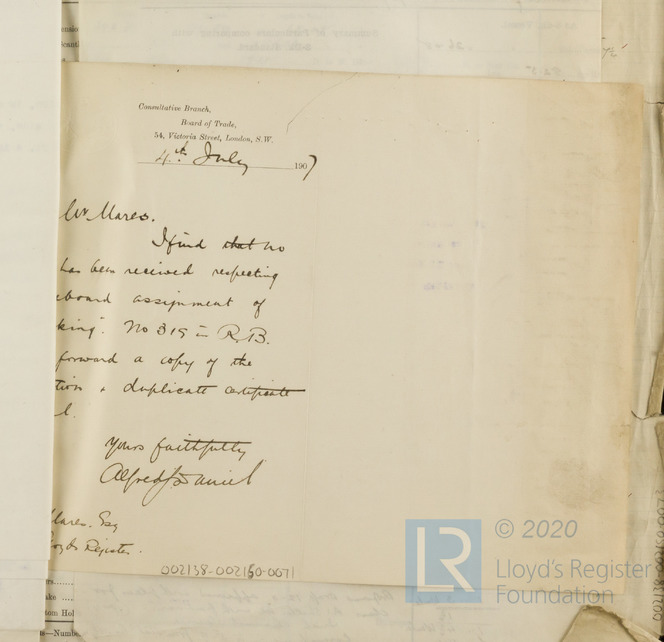 Consultative Branch,
Board of Trade,
54, Victoria Street, London, S.W.
4th July 1907
Mr Mares.
I find that no
has been received respecting
eboard assignment of
king". No 319 in R.B.
forward a copy of the
tion & duplicate certificate
l.
Yours faithfully
Alfred J Daniel
Mares. Esq
loyds Register.
002138-002150-0071
LR
© 2020
Lloyd's Register
Foundation
tom Hol
—Numbe